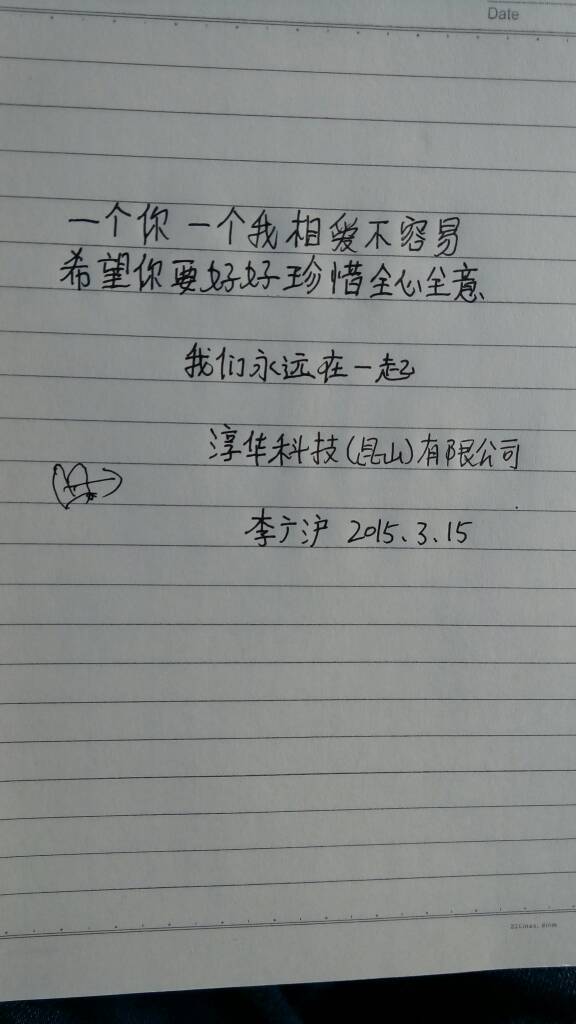 Date
一个你 一个我 相爱不容易
希望你要好好珍惜全心全意
我们永远在一起
淳华科技(昆山)有限公司
李广沪 2015.3.15